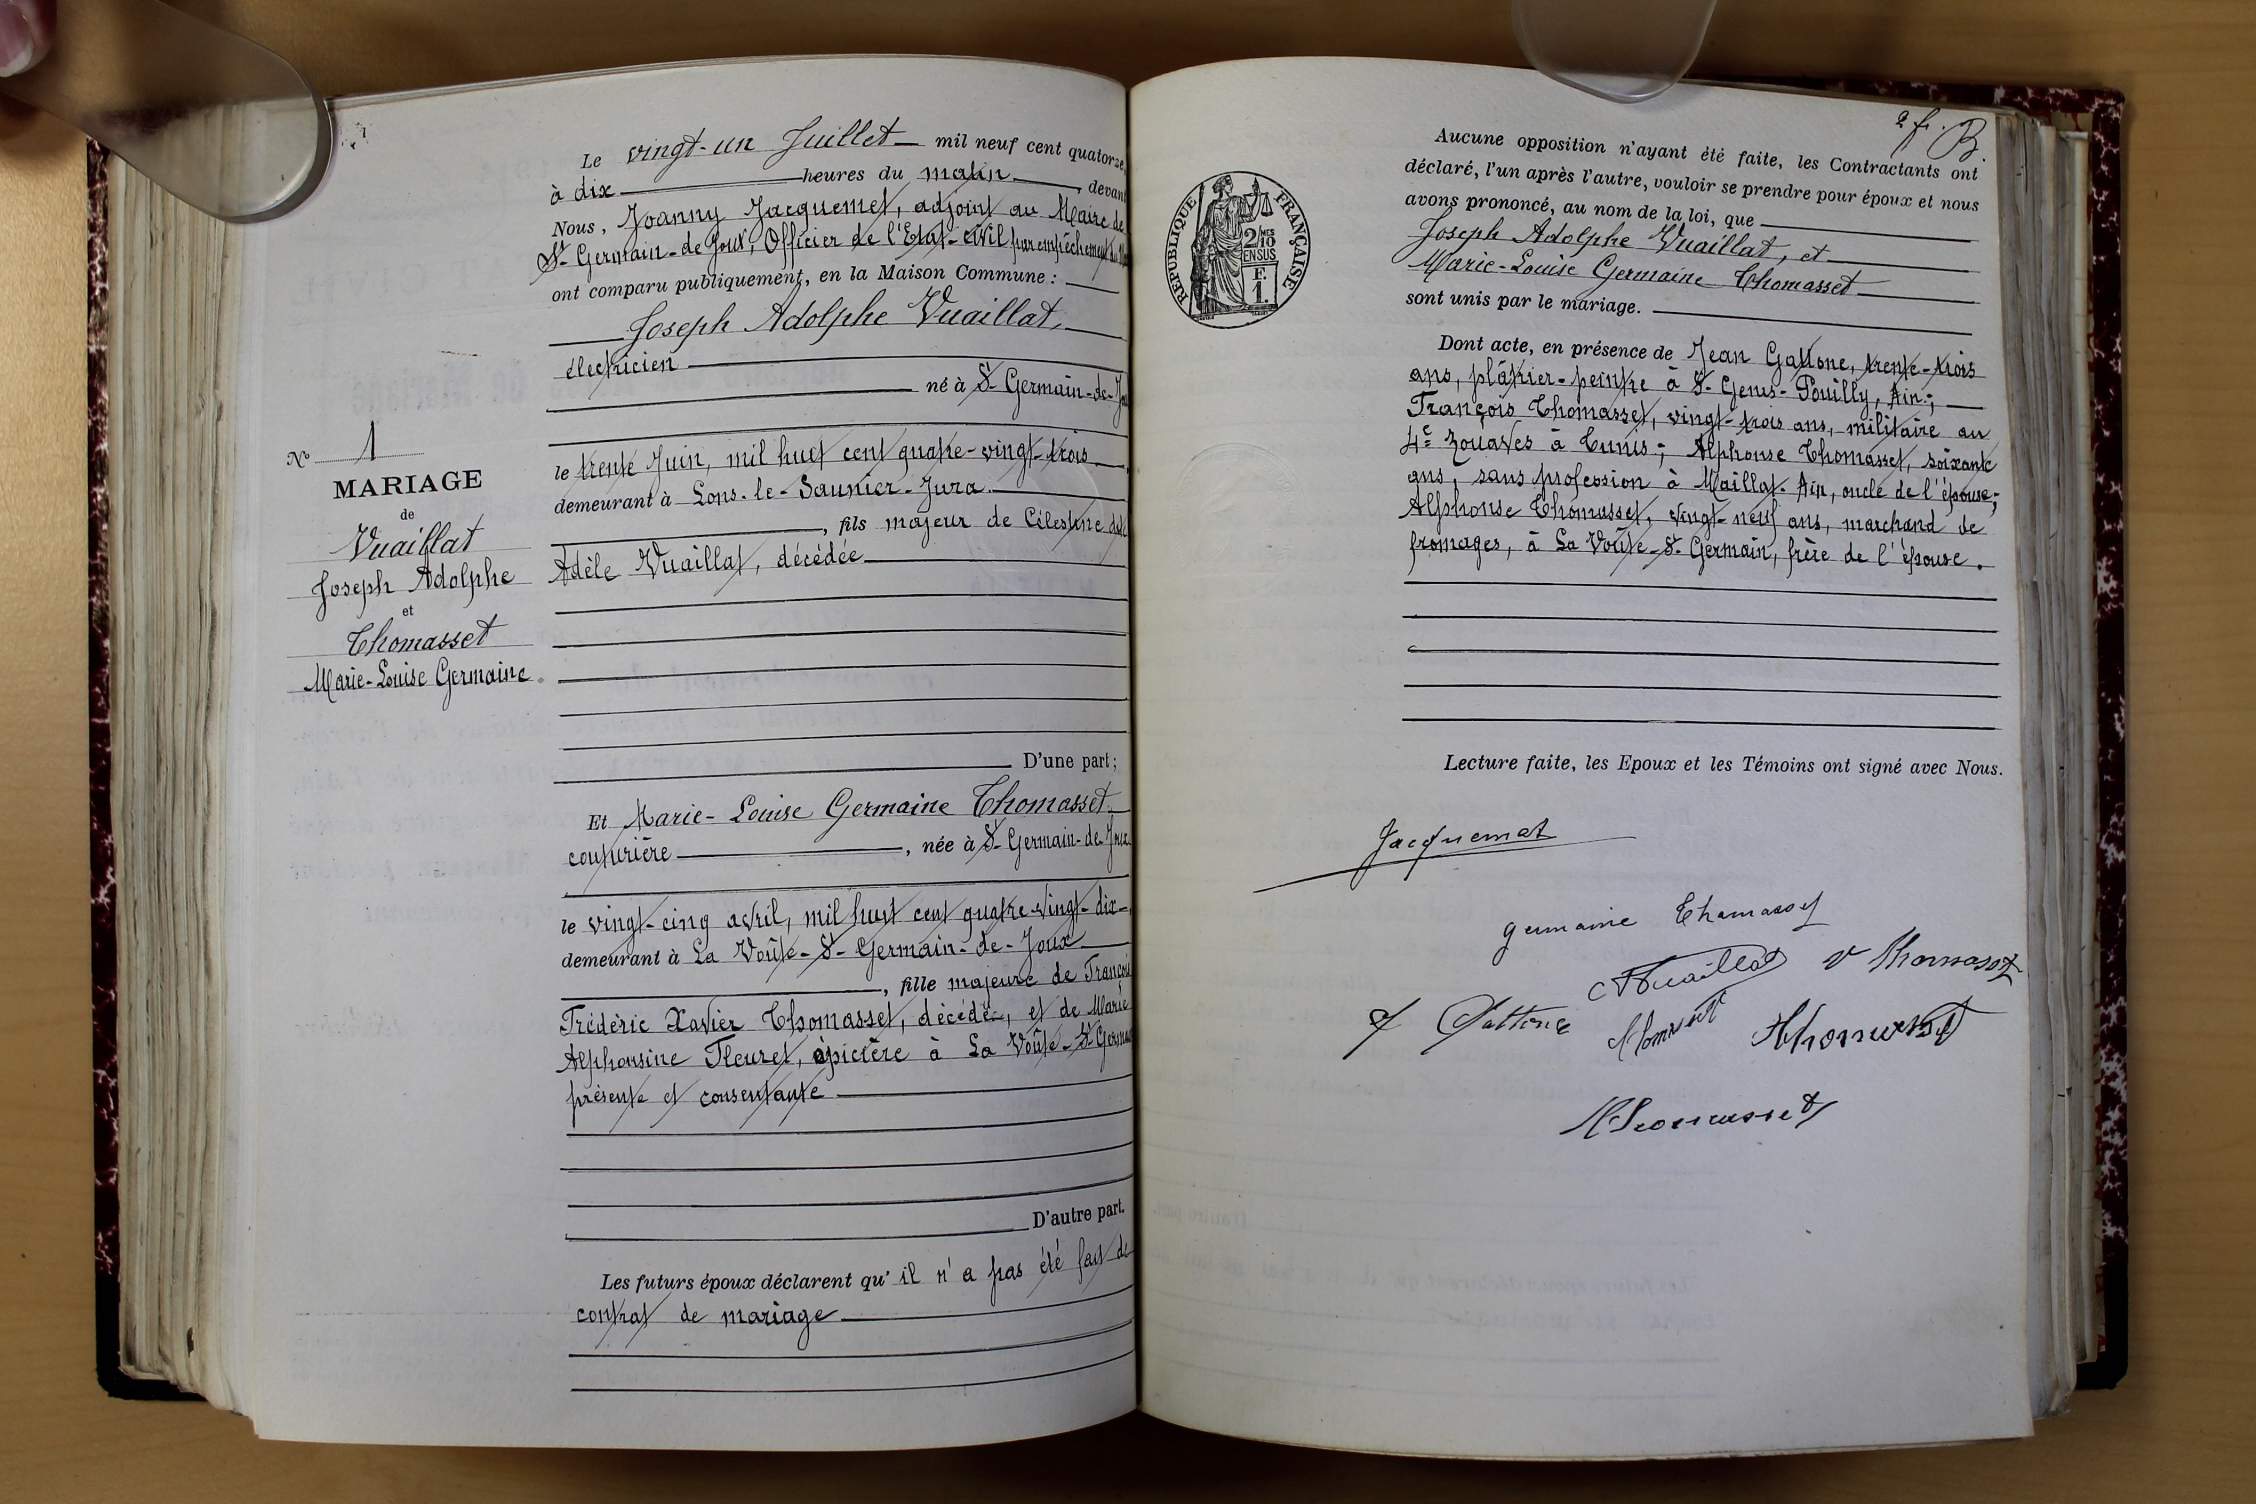 Le vingt-un Juillet mil neuf cent quatorze,
à dix heures du matin, devant
Nous, Joanny Jacquemet, adjoint au Maire de
St Germain-de-Joux, Officier de l'Etat-civil par empêchement du
ont comparu publiquement, en la Maison Commune :
Joseph Adolphe Vuaillat,
électricien
né à St Germain-de-Joux
le trente Juin, mil huit cent quatre-vingt-trois,
demeurant à Lons-le-Saunier-Jura
, fils majeur de Célestine dite
Adèle Vuaillat, décédée
D'une part ;
Et Marie-Louise Germaine Thomasset
couturière, née à St Germain-de-Joux
le vingt-cinq avril, mil huit cent quatre-vingt-dix
demeurant à La Voûte-St Germain-de-Joux
, fille majeure de François
Frédéric Xavier Thomasset, décédé, et de Marie
Alphonsine Fleuret, épicière à La Voûte-St Germain
présente et consentante
D'autre part.
Les futurs époux déclarent qu'il n'a pas été fait de
contrat de mariage
No 1
MARIAGE
de
Vuaillat
Joseph Adolphe
et
Thomasset
Marie-Louise Germaine.
2 f. B.
RÉPUBLIQUE FRANÇAISE
2/10 MES
EN SUS
F.
1.
Aucune opposition n'ayant été faite, les Contractants ont
déclaré, l'un après l'autre, vouloir se prendre pour époux et nous
avons prononcé, au nom de la loi, que
Joseph Adolphe Vuaillat, et
Marie-Louise Germaine Thomasset
sont unis par le mariage.
Dont acte, en présence de Jean Gattone, trente-trois
ans, plâtrier-peintre à St Genis-Pouilly, Ain ;
François Thomasset, vingt-trois ans, militaire au
4e zouaves à Tunis ; Alphonse Thomasset, soixante
ans, sans profession à Maillat-Ain, oncle de l'épouse ;
Alphonse Thomasset, vingt-neuf ans, marchand de
fromages, à La Voûte-St Germain, frère de l'épouse.
Lecture faite, les Epoux et les Témoins ont signé avec Nous.
Jacquemet
Germaine Thomasset
Vuaillat
V Thomasset
Gattone
Thomasset
Thomasset